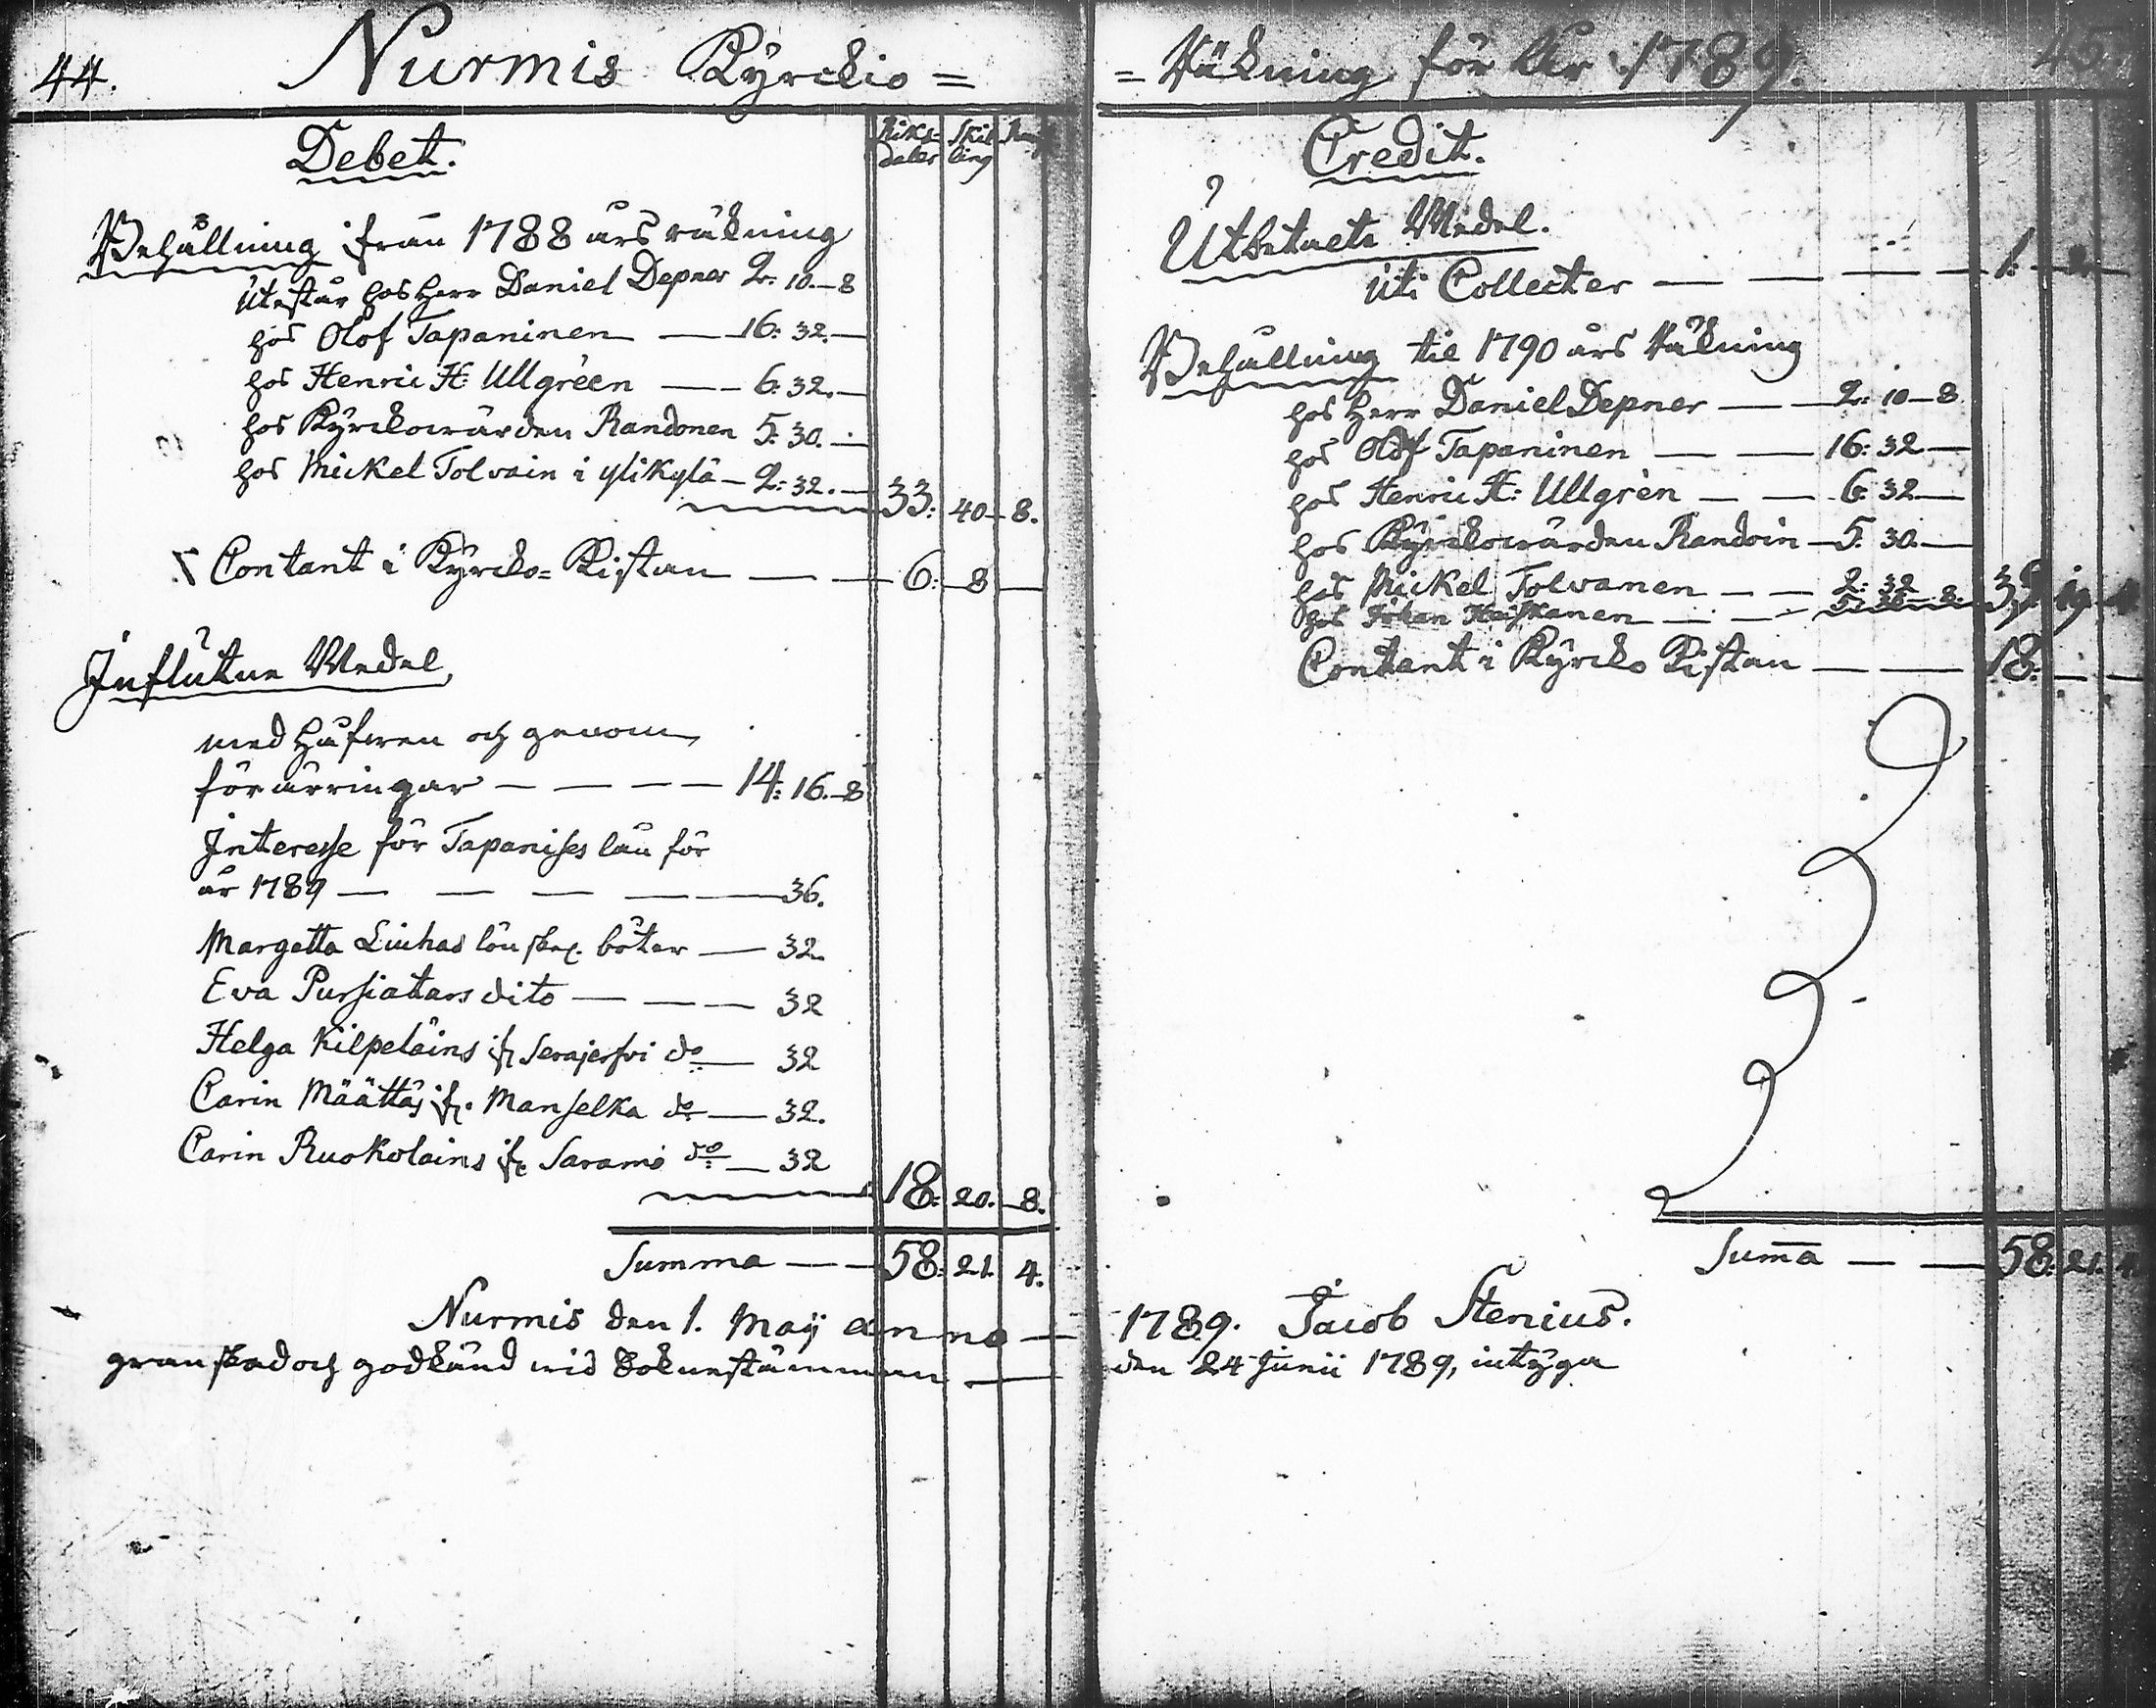 44.
Nurmis Kyrckio=
Debet.
Riks-daler Skil-ling
Behållning ifrån 1788 års räkning
Utestår hos Herr Daniel Depner 2. 10.-8
hos Olof Tapaninen — 16: 32.—
hos Henric H: Ullgréen — 6: 32.—
hos Kyrckowärden Randonen 5: 30.—
hos Mickel Tolvain i ylikylä — 2: 32.— 33: 40 8.
Contant i Kyrcko=Kistan — — 6: 8 —
Influtne Medel,
med Håfwen och genom
förärringar — — — — 14: 16.-8
Interesse för Tapanises lån för
år 1789 — — — — — 36.
Margetta Liuhas lönskr. böter — 32.
Eva Pursiatars dito — — — 32
Helga Kilpeläins ifr. Serajerfvi do — 32
Carin Määttäs ifr. Manselka do — 32.
Carin Ruokolains ifr. Saramo do — 32
18: 20. 8.
Summa — — 58: 21 4.
Nurmis den 1. Maij anno —
granskad och godkänd wid Sokunstämman —
=Räkning för År 1789.
45.
Credit.
Utbetaete Medel.
uti Collecter — — — — 1: 2 —
Behållning til 1790 års Räkning
hos Herr Daniel Depner — 2: 10-8
hos Olof Tapaninen — — 16: 32 —
hos Henric H: Ullgrèn — — 6: 32 —
hos Kyrckowärden Randoin — 5: 30. —
hos Mickel Tolvanen — — 2: 32
hos Johan Heiskanen — — 5: 36 8. 39 19 4
Contant i Kyrcko Kistan — — 18: — —
Summa — — 58: 21. 4
1789. Jacob Stenius.
den 24 Junii 1789, intyga